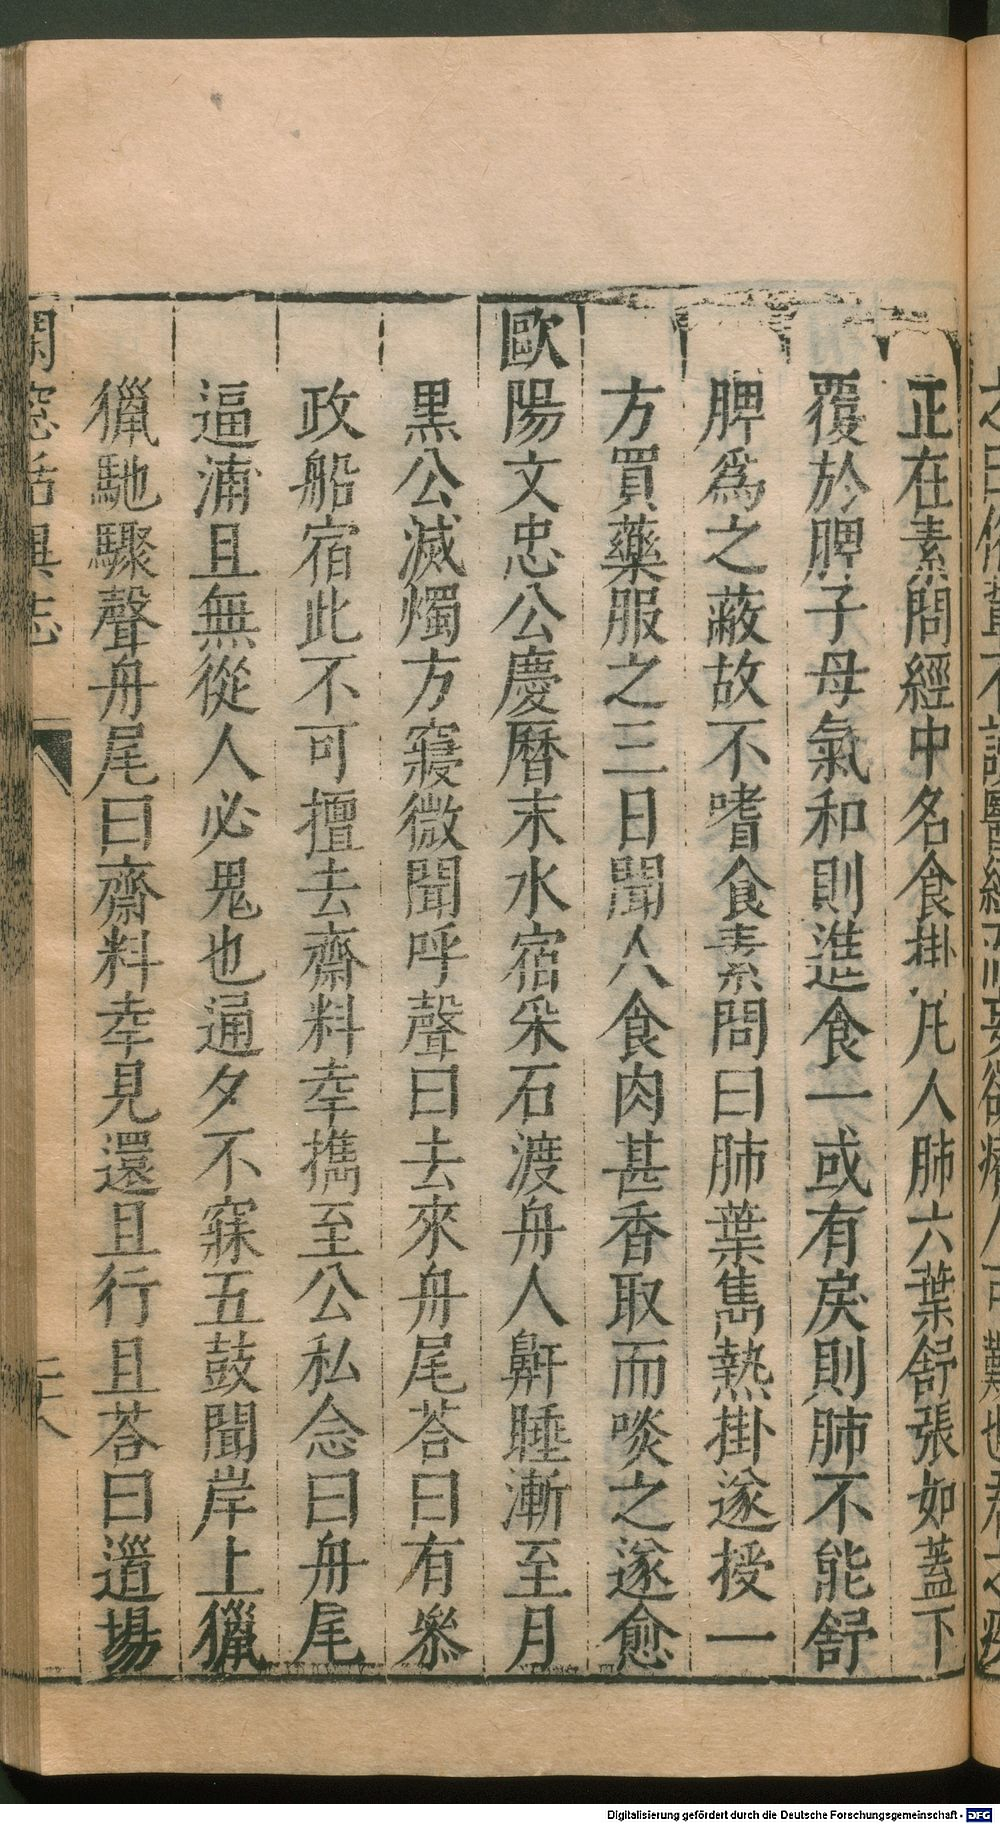 正在素問經中名食掛凡人肺六葉舒張如蓋下
覆於脾子母氣和則進食一或有戾則肺不能舒
脾爲之蔽故不嗜食素問曰肺葉雋熱掛遂授一
方買藥服之三日聞人食肉甚香取而啖之遂愈
歐陽文忠公慶曆末水宿采石渡舟人鼾睡漸至月
黑公滅燭方寢微聞呼聲曰去來舟尾荅曰有叅
政船宿此不可擅去齋料幸攜至公私念曰舟尾
逼浦且無從人必鬼也通夕不寐五鼓聞岸上獵
獵馳驟聲舟尾曰齋料幸見還且行且荅曰道場
閑窓括異志
二十八
Digitalisierung gefördert durch die Deutsche Forschungsgemeinschaft - DFG